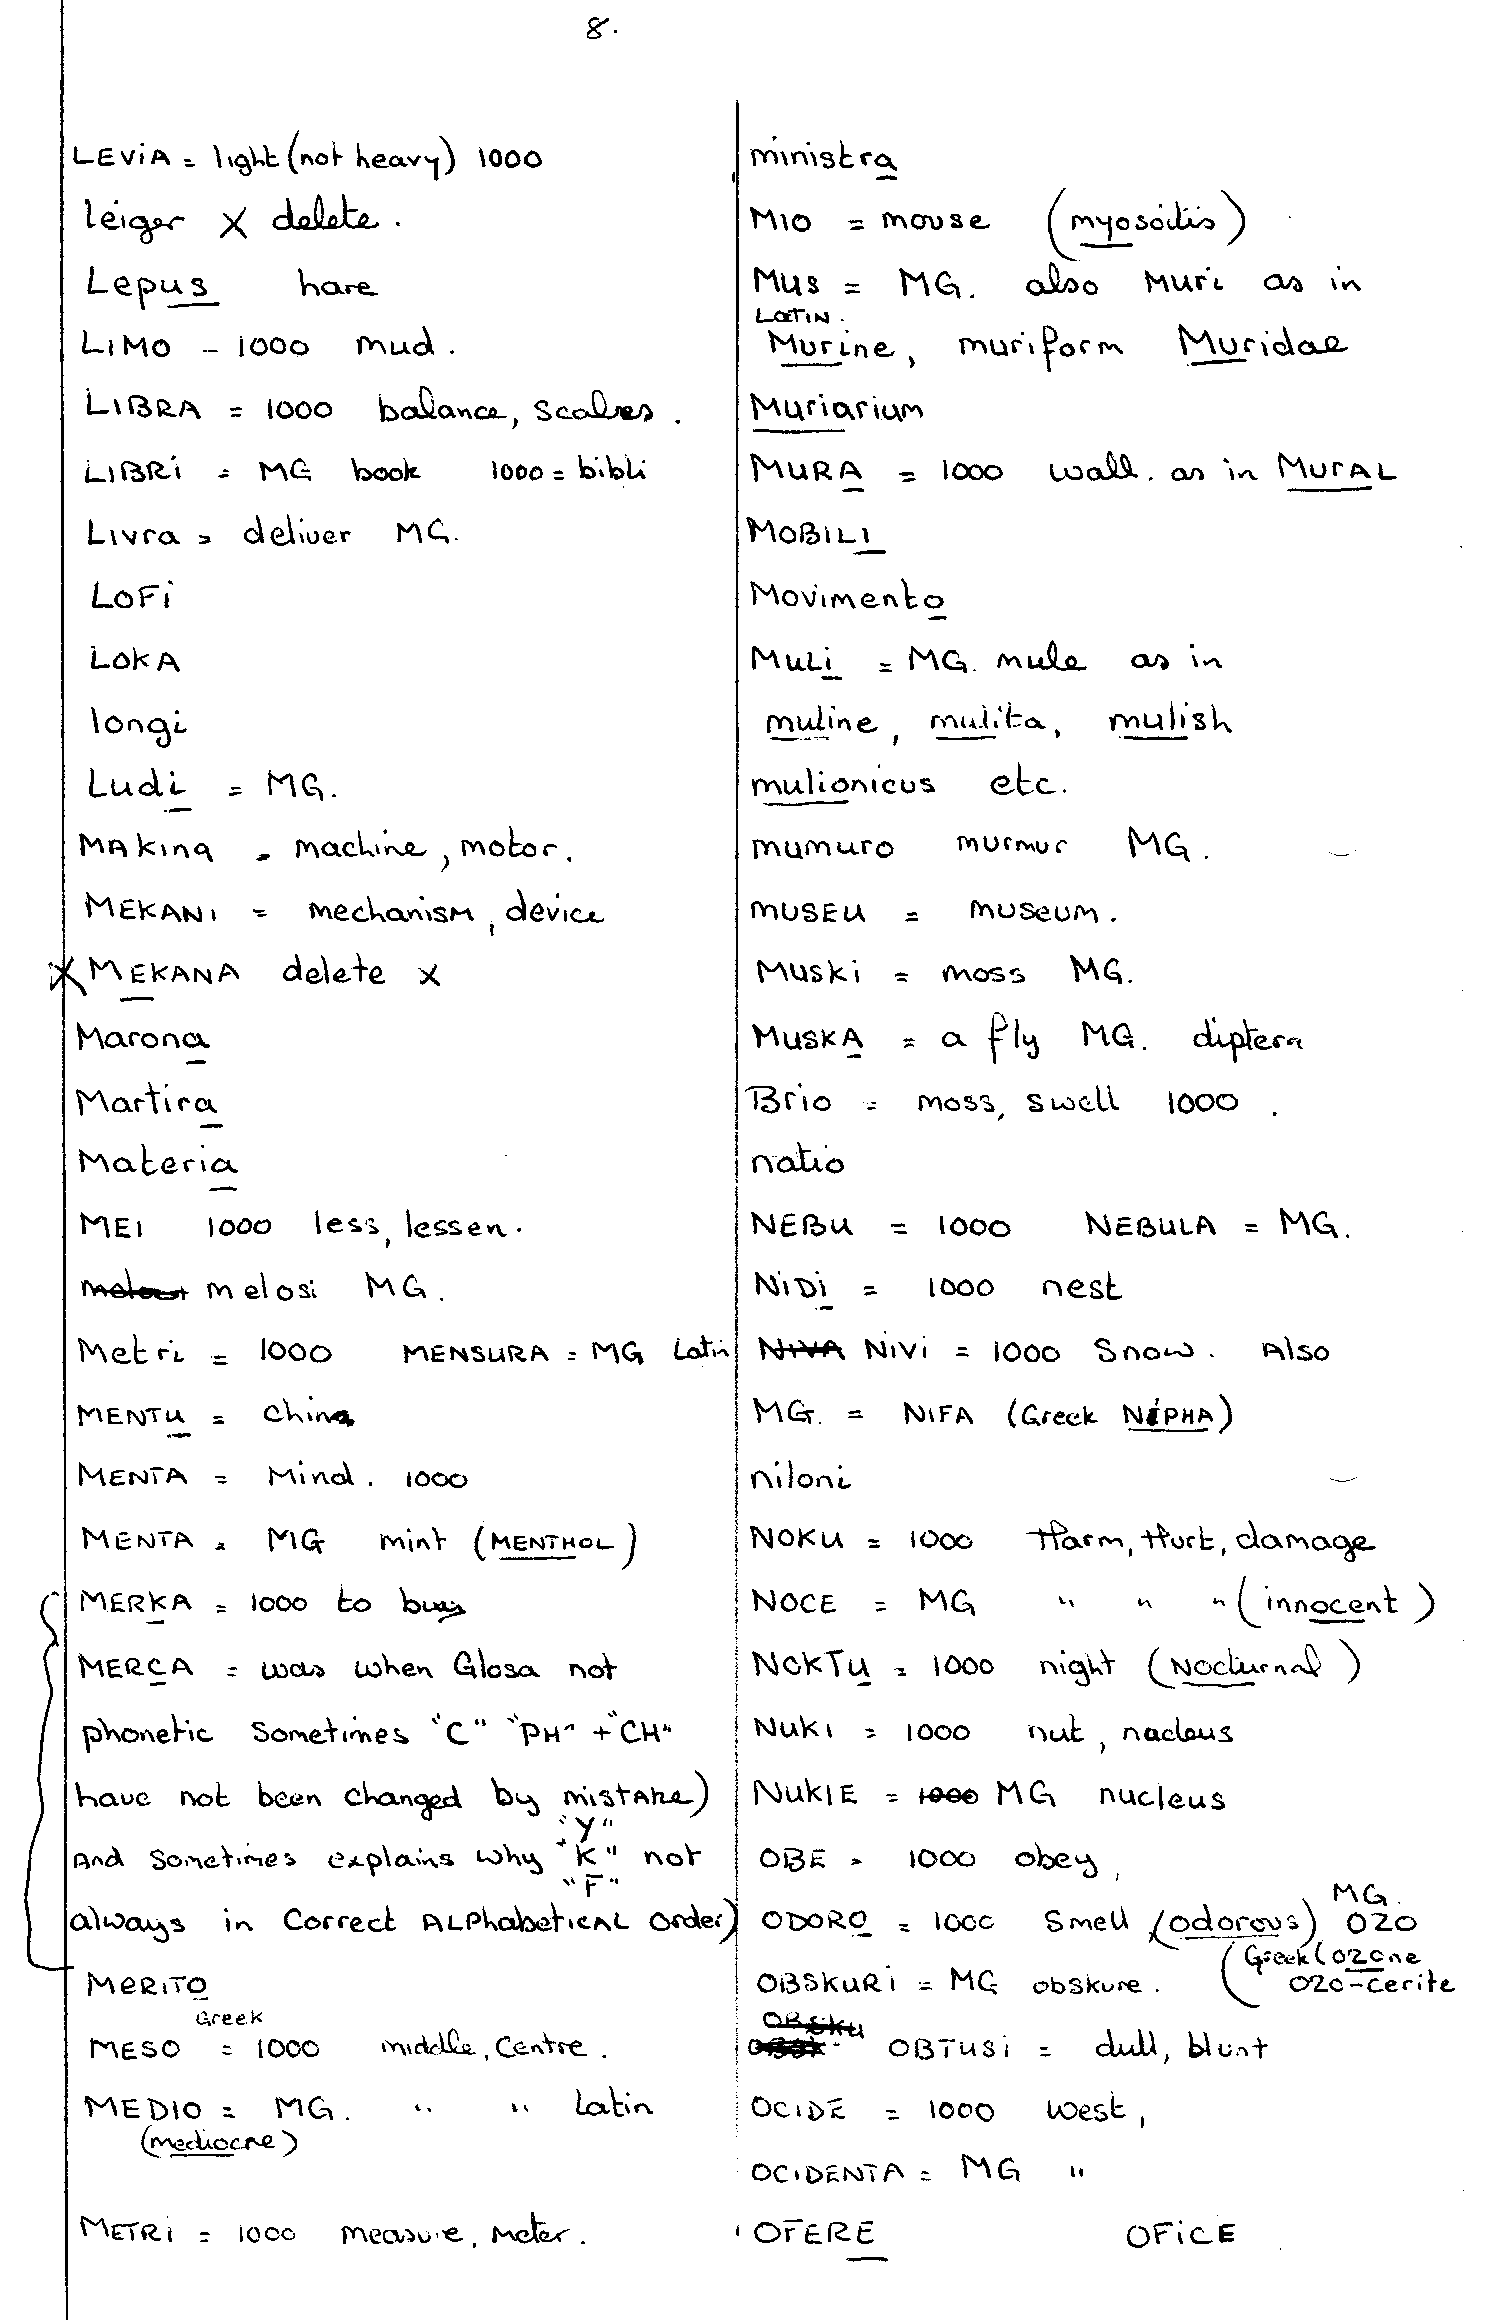 8.
LEViA = light (not heavy) 1000
leiger X delete.
Lepus hare
LIMO - 1000 mud.
LIBRA = 1000 balance, scales.
LIBRi = MG book 1000 = bibli
Livra = deliver MG.
LOFi
LOKA
longi
Ludi = MG.
MAKina = machine, motor.
MEKANI = mechanism, device
X MEKANA delete x
Marona
Martira
Materia
MEI 1000 less, lessen.
melosi MG.
Metri = 1000 MENSURA = MG Latin
MENTU = China
MENTA = Mind. 1000
MENTA = MG mint (MENTHOL)
MERKA = 1000 to buy
MERCA = was when Glosa not
phonetic Sometimes "C" "PH" + "CH"
have not been changed by mistake)
"Y"
And Sometimes explains why "K" not
"F"
always in Correct ALPhabetical Order)
MERITO
Greek
MESO = 1000 middle, Centre.
MEDIO = MG. " " Latin
(mediocre)
METRi = 1000 measure, meter.
ministra
MIO = mouse (myosotis)
Mus = MG. also Muri as in
LATIN.
Murine, muriform Muridae
Muriarium
MURA = 1000 wall. as in MURAL
MOBILI
Movimento
MuLi = MG. mule as in
muline, mulita, mulish
mulionicus etc.
mumuro murmur MG.
MUSEU = museum.
Muski = moss MG.
MUSKA = a fly MG. diptera
Brio = moss, swell 1000.
natio
NEBU = 1000 NEBULA = MG.
NiDi = 1000 nest
NIVA NiVi = 1000 Snow. Also
MG. = NIFA (Greek NIPHA)
niloni
NOKU = 1000 Harm, Hurt, damage
NOCE = MG " " " (innocent)
NOKTU = 1000 night (Nocturnal)
NUKI = 1000 nut, nucleus
NUKIE = 1000 MG nucleus
OBE = 1000 obey,
MG.
ODORO = 1000 Smell (odorous) OZO
(Greek (OZOne
OBSKURi = MG obskure. OZO-cerite
OBSKU
OBTUSi = dull, blunt
OCIDE = 1000 west,
OCIDENTA = MG "
OFERE OFiCE